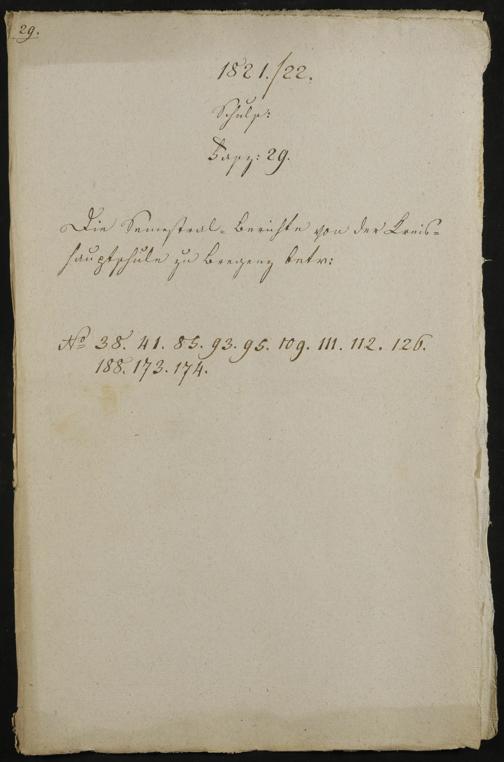 29.
1821./22.
Schulf:
Fasz: 29.
Die Semestral-Berichte von der Kreis=
hauptschule zu Bregenz betr:
No 38. 41. 85. 93. 95. 109. 111. 112. 126.
188. 173. 174.